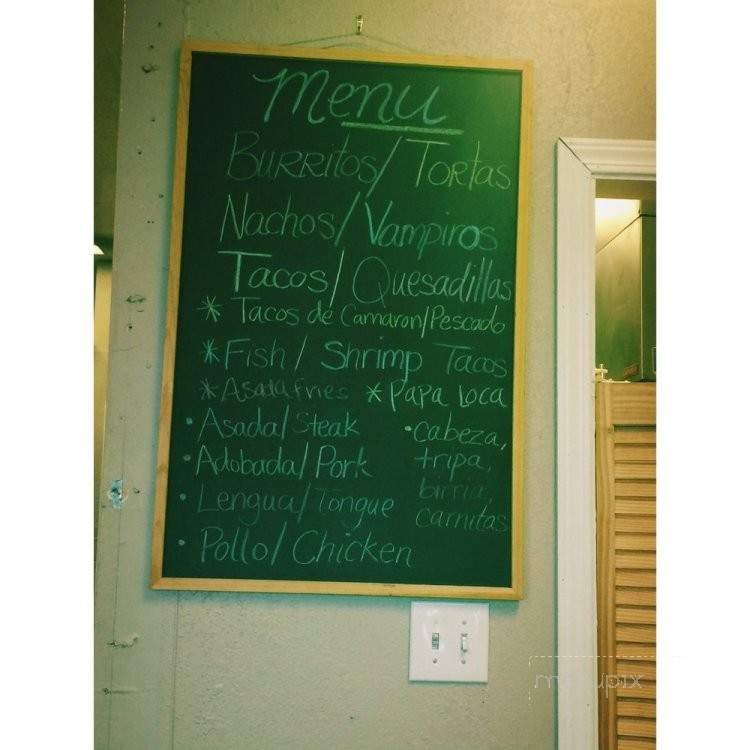 Menu
Burritos/Tortas
Nachos/Vampiros
Tacos/Quesadillas
* Tacos de Camaron/Pescado
* Fish/Shrimp Tacos
* Asada fries * Papa Loca
• Asada/Steak
• Adobada/Pork
• Lengua/Tongue
• Pollo/Chicken
• cabeza,
tripa,
birria,
carnitas